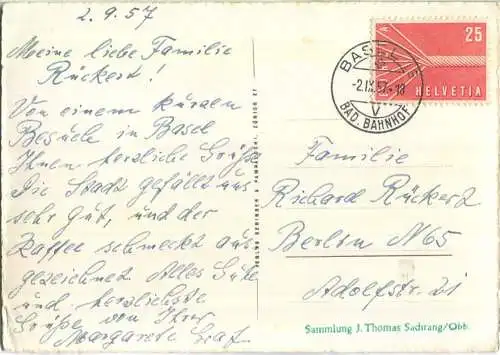 2.9.57
Meine liebe Familie
Rückert!
Von einem kurzen
Besuch in Basel
Ihnen herzliche Grüße
Die Stadt gefällt uns
sehr gut, und der
Kaffee schmeckt aus
gezeichnet Alles Gute
und herzlichste
Grüße von Ihrer
Margarete Graf
BASEL
-2.IX.57-18
V
BAD. BAHNHOF
25
HELVETIA
Familie
Richard Rückert
Berlin N65
Adolfstr. 21
Sammlung J. Thomas Sachrang/Obb.